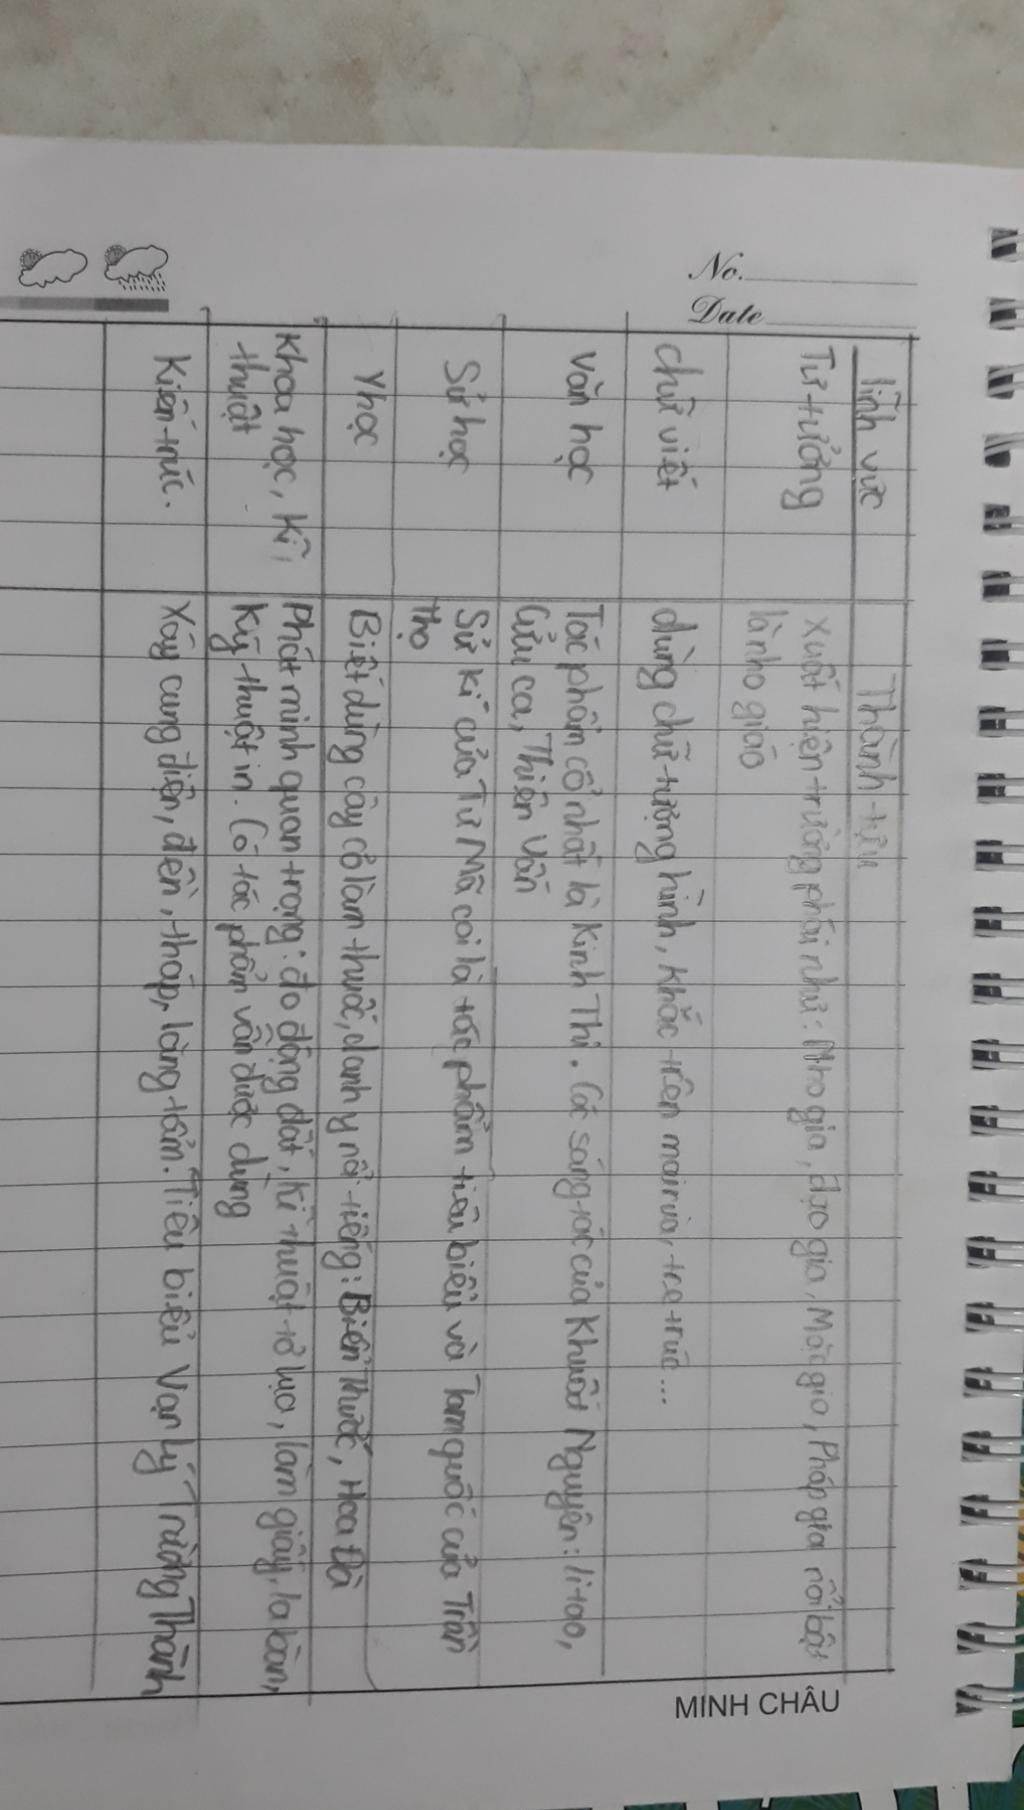 No.
Date
MINH CHÂU
lĩnh vực Thành tựu
Tư tưởng Xuất hiện trường phái như: Nho gia, đạo gia, Mặc gia, Pháp gia nổi bật
là nho giáo
chữ viết dùng chữ tượng hình, khắc trên mai rùa, tre trúc...
Văn học Tác phẩm cổ nhất là Kinh Thi. Có sáng tác của Khuất Nguyên: li tao,
Cửu ca, Thiên Vấn
Sử học Sử kí của Tư Mã coi là tác phẩm tiêu biểu và Tam quốc của Trần
Thọ
Y học Biết dùng cây cỏ làm thuốc, danh y nổi tiếng: Biển Thước, Hoa Đà
Khoa học, Kĩ Phát minh quan trọng: đo động đất, kĩ thuật tơ lụa, làm giấy, la bàn,
thuật Kỹ thuật in. Có tác phẩm vẫn được dùng
Kiến trúc. Xây cung điện, đền, tháp, lăng tẩm. Tiêu biểu Vạn lý Trường Thành